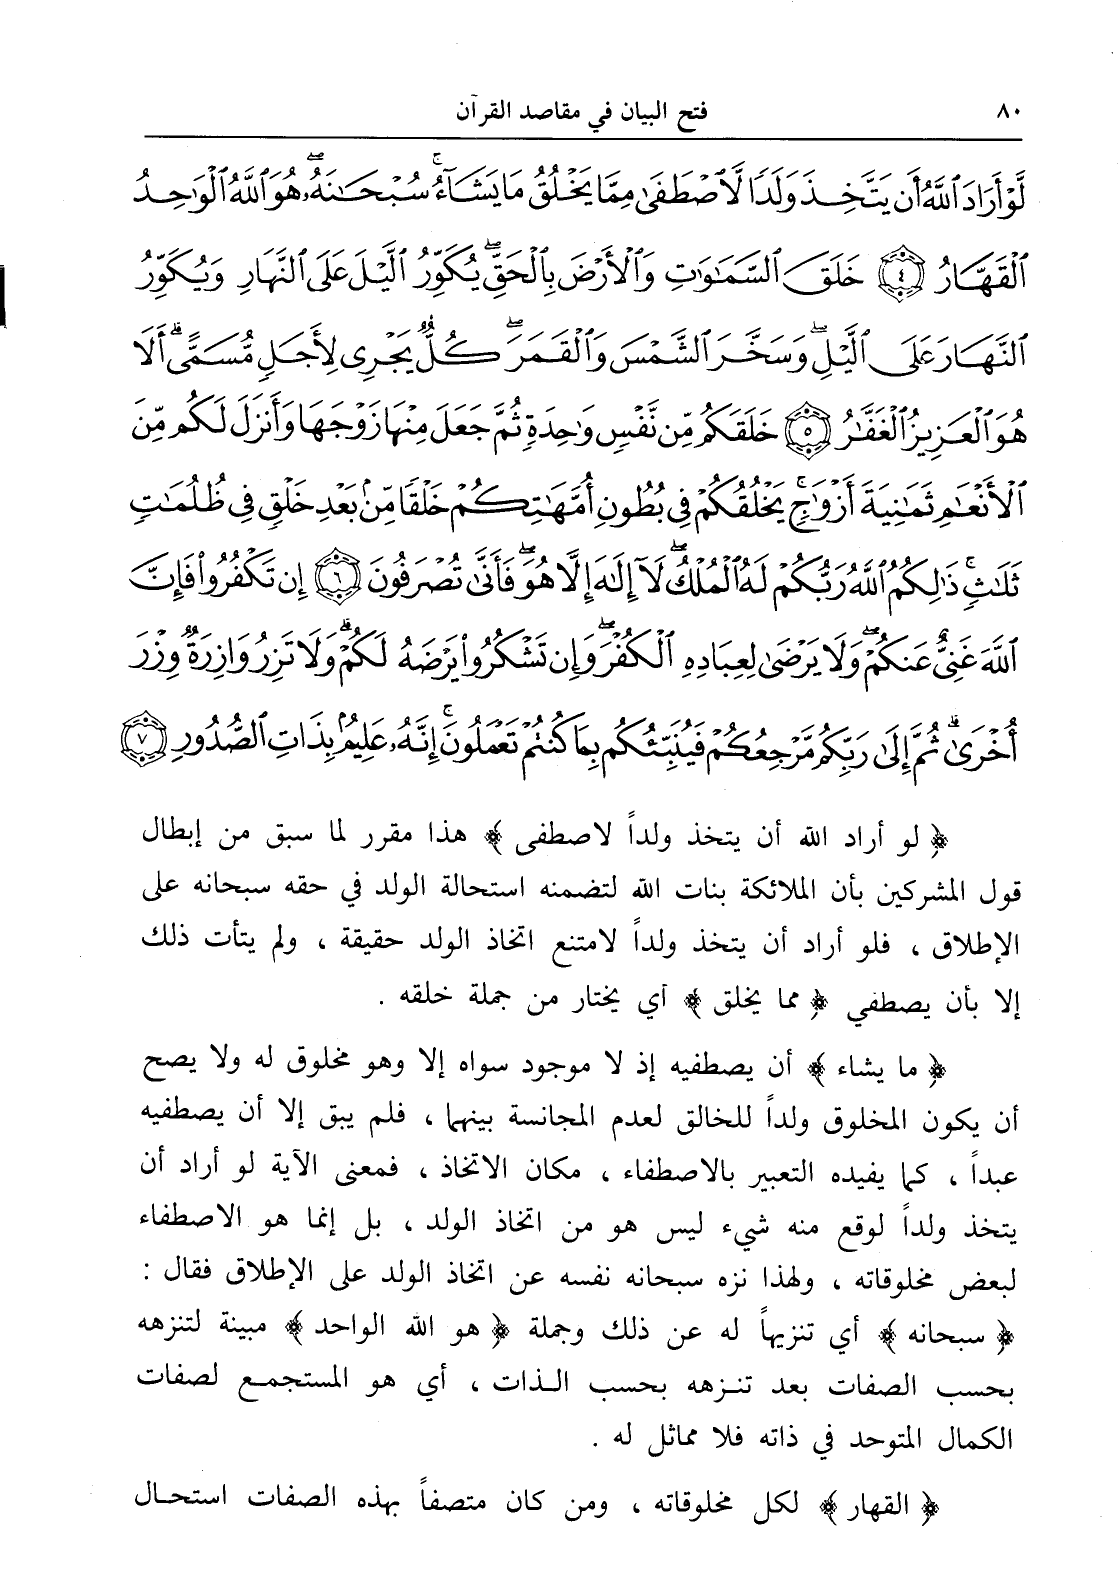 ٨٠ فتح البيان في مقاصد القرآن
لَّوْ أَرَادَ ٱللَّهُ أَن يَتَّخِذَ وَلَدًا لَّٱصْطَفَىٰ مِمَّا يَخْلُقُ مَا يَشَآءُ ۚ سُبْحَٰنَهُۥ ۖ هُوَ ٱللَّهُ ٱلْوَٰحِدُ
ٱلْقَهَّارُ ﴿٤﴾ خَلَقَ ٱلسَّمَٰوَٰتِ وَٱلْأَرْضَ بِٱلْحَقِّ ۖ يُكَوِّرُ ٱلَّيْلَ عَلَى ٱلنَّهَارِ وَيُكَوِّرُ
ٱلنَّهَارَ عَلَى ٱلَّيْلِ ۖ وَسَخَّرَ ٱلشَّمْسَ وَٱلْقَمَرَ ۖ كُلٌّ يَجْرِى لِأَجَلٍ مُّسَمًّى ۗ أَلَا
هُوَ ٱلْعَزِيزُ ٱلْغَفَّٰرُ ﴿٥﴾ خَلَقَكُم مِّن نَّفْسٍ وَٰحِدَةٍ ثُمَّ جَعَلَ مِنْهَا زَوْجَهَا وَأَنزَلَ لَكُم مِّنَ
ٱلْأَنْعَٰمِ ثَمَٰنِيَةَ أَزْوَٰجٍ ۚ يَخْلُقُكُمْ فِى بُطُونِ أُمَّهَٰتِكُمْ خَلْقًا مِّنۢ بَعْدِ خَلْقٍ فِى ظُلُمَٰتٍ
ثَلَٰثٍ ۚ ذَٰلِكُمُ ٱللَّهُ رَبُّكُمْ لَهُ ٱلْمُلْكُ ۖ لَآ إِلَٰهَ إِلَّا هُوَ ۖ فَأَنَّىٰ تُصْرَفُونَ ﴿٦﴾ إِن تَكْفُرُوا۟ فَإِنَّ
ٱللَّهَ غَنِىٌّ عَنكُمْ ۖ وَلَا يَرْضَىٰ لِعِبَادِهِ ٱلْكُفْرَ ۖ وَإِن تَشْكُرُوا۟ يَرْضَهُ لَكُمْ ۗ وَلَا تَزِرُ وَازِرَةٌ وِزْرَ
أُخْرَىٰ ۗ ثُمَّ إِلَىٰ رَبِّكُم مَّرْجِعُكُمْ فَيُنَبِّئُكُم بِمَا كُنتُمْ تَعْمَلُونَ ۚ إِنَّهُۥ عَلِيمٌۢ بِذَاتِ ٱلصُّدُورِ ﴿٧﴾
﴿ لو أراد الله أن يتخذ ولداً لاصطفى ﴾ هذا مقرر لما سبق من إبطال
قول المشركين بأن الملائكة بنات الله لتضمنه استحالة الولد في حقه سبحانه على
الإطلاق ، فلو أراد أن يتخذ ولداً لامتنع اتخاذ الولد حقيقة ، ولم يتأت ذلك
إلا بأن يصطفي ﴿ مما يخلق ﴾ أي يختار من جملة خلقه .
﴿ ما يشاء ﴾ أن يصطفيه إذ لا موجود سواه إلا وهو مخلوق له ولا يصح
أن يكون المخلوق ولداً للخالق لعدم المجانسة بينهما ، فلم يبق إلا أن يصطفيه
عبداً ، كما يفيده التعبير بالاصطفاء ، مكان الاتخاذ ، فمعنى الآية لو أراد أن
يتخذ ولداً لوقع منه شيء ليس هو من اتخاذ الولد ، بل إنما هو الاصطفاء
لبعض مخلوقاته ، ولهذا نزه سبحانه نفسه عن اتخاذ الولد على الإطلاق فقال :
﴿ سبحانه ﴾ أي تنزيهاً له عن ذلك وجملة ﴿ هو الله الواحد ﴾ مبينة لتنزهه
بحسب الصفات بعد تنزهه بحسب الذات ، أي هو المستجمع لصفات
الكمال المتوحد في ذاته فلا مماثل له .
﴿ القهار ﴾ لكل مخلوقاته ، ومن كان متصفاً بهذه الصفات استحال